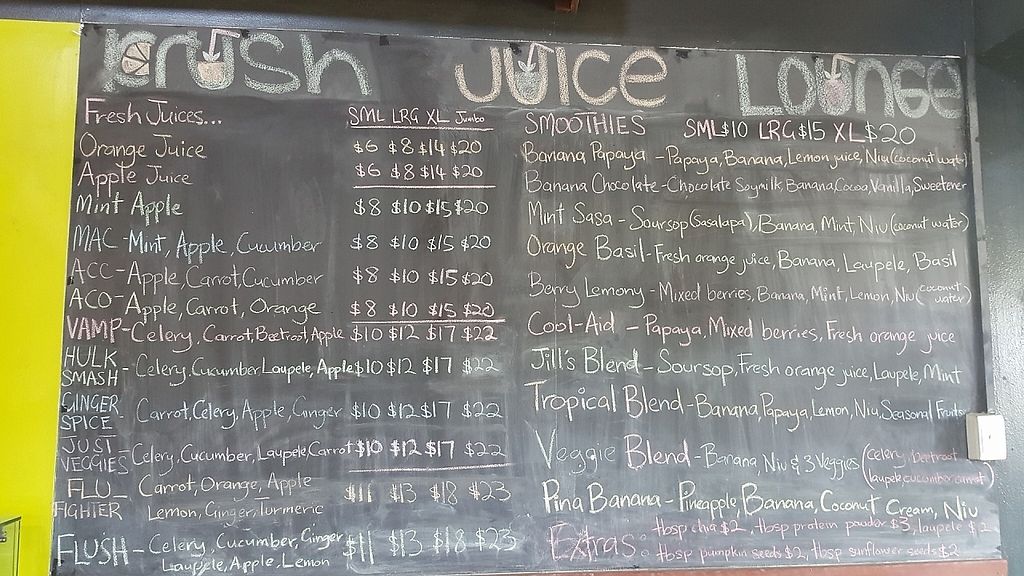 Krush Juice Lounge
Fresh Juices... SML LRG XL Jumbo
Orange Juice $6 $8 $14 $20
Apple Juice $6 $8 $14 $20
Mint Apple $8 $10 $15 $20
MAC - Mint, Apple, Cucumber $8 $10 $15 $20
ACC - Apple, Carrot, Cucumber $8 $10 $15 $20
ACO - Apple, Carrot, Orange $8 $10 $15 $20
VAMP - Celery, Carrot, Beetroot, Apple $10 $12 $17 $22
HULK SMASH - Celery, Cucumber, Laupele, Apple $10 $12 $17 $22
GINGER SPICE Carrot, Celery, Apple, Ginger $10 $12 $17 $22
JUST VEGGIES - Celery, Cucumber, Laupele, Carrot $10 $12 $17 $22
FLU FIGHTER - Carrot, Orange, Apple $11 $13 $18 $23
Lemon, Ginger, Turmeric
FLUSH - Celery, Cucumber, Ginger $11 $13 $18 $23
Laupele, Apple, Lemon
SMOOTHIES SML $10 LRG $15 XL $20
Banana Papaya - Papaya, Banana, Lemon juice, Niu (coconut water)
Banana Chocolate - Chocolate Soymilk, Banana, Cocoa, Vanilla, Sweetener
Mint Sasa - Soursop (Sasalapa), Banana, Mint, Niu (coconut water)
Orange Basil - Fresh orange juice, Banana, Laupele, Basil
Berry Lemony - Mixed berries, Banana, Mint, Lemon, Niu (coconut water)
Cool-Aid - Papaya, Mixed berries, Fresh orange juice
Jill's Blend - Soursop, Fresh orange juice, Laupele, Mint
Tropical Blend - Banana, Papaya, Lemon, Niu, Seasonal Fruits
Veggie Blend - Banana, Niu & 3 Veggies (celery beetroot
laupele cucumber carrot)
Pina Banana - Pineapple, Banana, Coconut Cream, Niu
Extras: tbsp chia $2, tbsp protein powder $3, laupele $2
tbsp pumpkin seeds $2, tbsp sunflower seeds $2